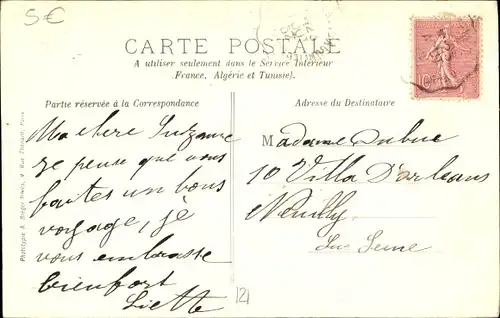 5€
CARTE POSTALE
A utiliser seulement dans le Service Intérieur
(France, Algérie et Tunisie).
Partie réservée à la Correspondance
Adresse du Destinataire
Ma chere Suzanne
je pense que vous
faites un bons
voyage, je
vous embrasse
bienfort
Liette
Madame Dubuc
10 Villa D'orleans
Neuilly
Sur Seine
121
Phototypie A. Breger Frères, 9 Rue Thénard, Paris